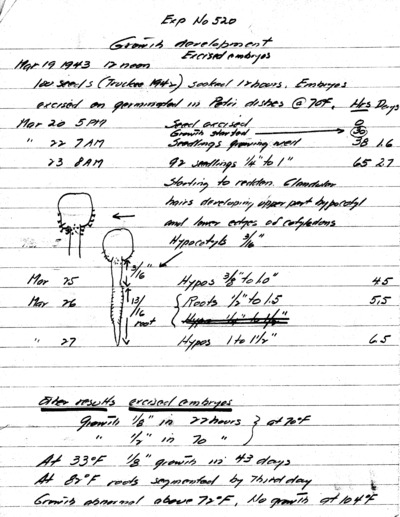 Exp No 520
Growth development
Excised embryos
Mar 19 1943 12 noon
100 seeds (Truckee 1942) soaked 12 hours. Embryos
excised on germinated in Petri dishes @ 70F. Hrs Days
Mar 20 5 PM Seed excised 0
Growth started 30
" 22 7 AM Seedlings growing well 38 1.6
23 8 AM 92 seedlings 1/4" to 1" 65 2.7
Starting to redden. Glandular
hairs developing upper part hypocotyl
and lower edges of cotyledons
Hypocotyls 3/16"
3/16"
Mar 25 Hypos 3/8" to 1.0" 4.5
Mar 26 13/16 root Roots 1/2" to 1.5 5.5
Hypo 1/4" to 1/2"
" 27 Hypos 1 to 1 1/2" 6.5
Other results excised embryos
Growth 1/8" in 22 hours } at 70°F
" 1/2" in 70 "
At 33°F 1/8" growth in 43 days
At 82°F roots segmented by third day
Growth abnormal above 72°F. No growth at 104°F